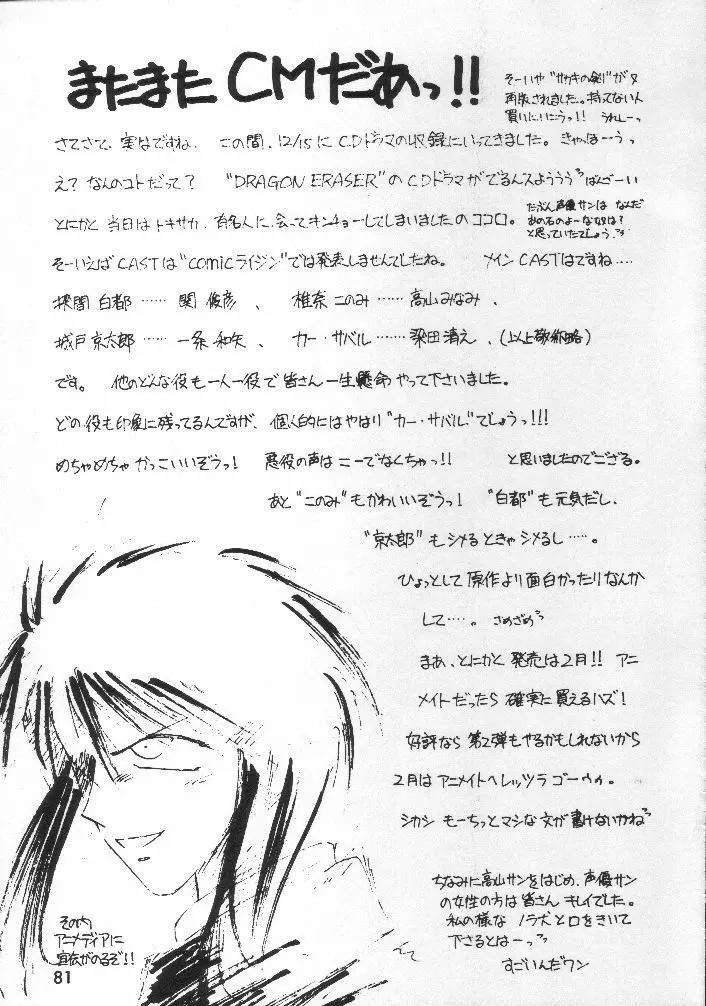 またまたCMだあっ!!
そーいや"サカキの剣"が又
再版されました。持ってない人
買いにいこうっ!! うれしーっ
さてさて、実はですね、この間、12/15にCDドラマの収録にいってきました。きゃっほーうっ
え?なんのコトだって? "DRAGON ERASER"のCDドラマがでるんスようううばんざーい
とにかく当日はトキサカ、有名人に会ってキンチョーしてしまいましたのココロ。
たぶん声優サンは なんだ
あの石のよーな奴は?
と思っていたでしょう、
そーいえばCASTは"comicライジン"では発表しませんでしたね。 メインCASTはですね‥‥
探間 白都‥‥‥関 俊彦、 椎奈 このみ‥‥‥高山みなみ、
城戸 京太郎‥‥‥一条 和矢、 カー・サバル‥‥‥梁田清之、(以上敬称略)
です。 他のどんな役も一人一役で皆さん一生懸命やって下さいました。
どの役も印象に残ってるんですが、個人的にはやはり"カー・サバル"でしょうっ!!!
めちゃめちゃかっこいいぞうっ! 悪役の声はこーでなくちゃっ!! と思いましたのでござる。
あと"このみ"もかわいいぞうっ! "白都"も元気だし、
"京太郎"もシメるときゃシメるし‥‥。
ひょっとして原作より面白かったりなんか
して‥‥。 さめざめ
まあ、とにかく発売は2月!! アニ
メイトだったら確実に買えるハズ!
好評なら第2弾もやるかもしれないから
2月はアニメイトへレッツラゴーゥゥ。
シカシ もーちっとマシな文が書けないかね
ちなみに高山サンをはじめ、声優サン
の女性の方は皆さんキレイでした。
私の様なノラ犬と口をきいて
下さるとはーっ
すごいんだワン
その内
アニメディアに
宣伝がのるぞ!!
81